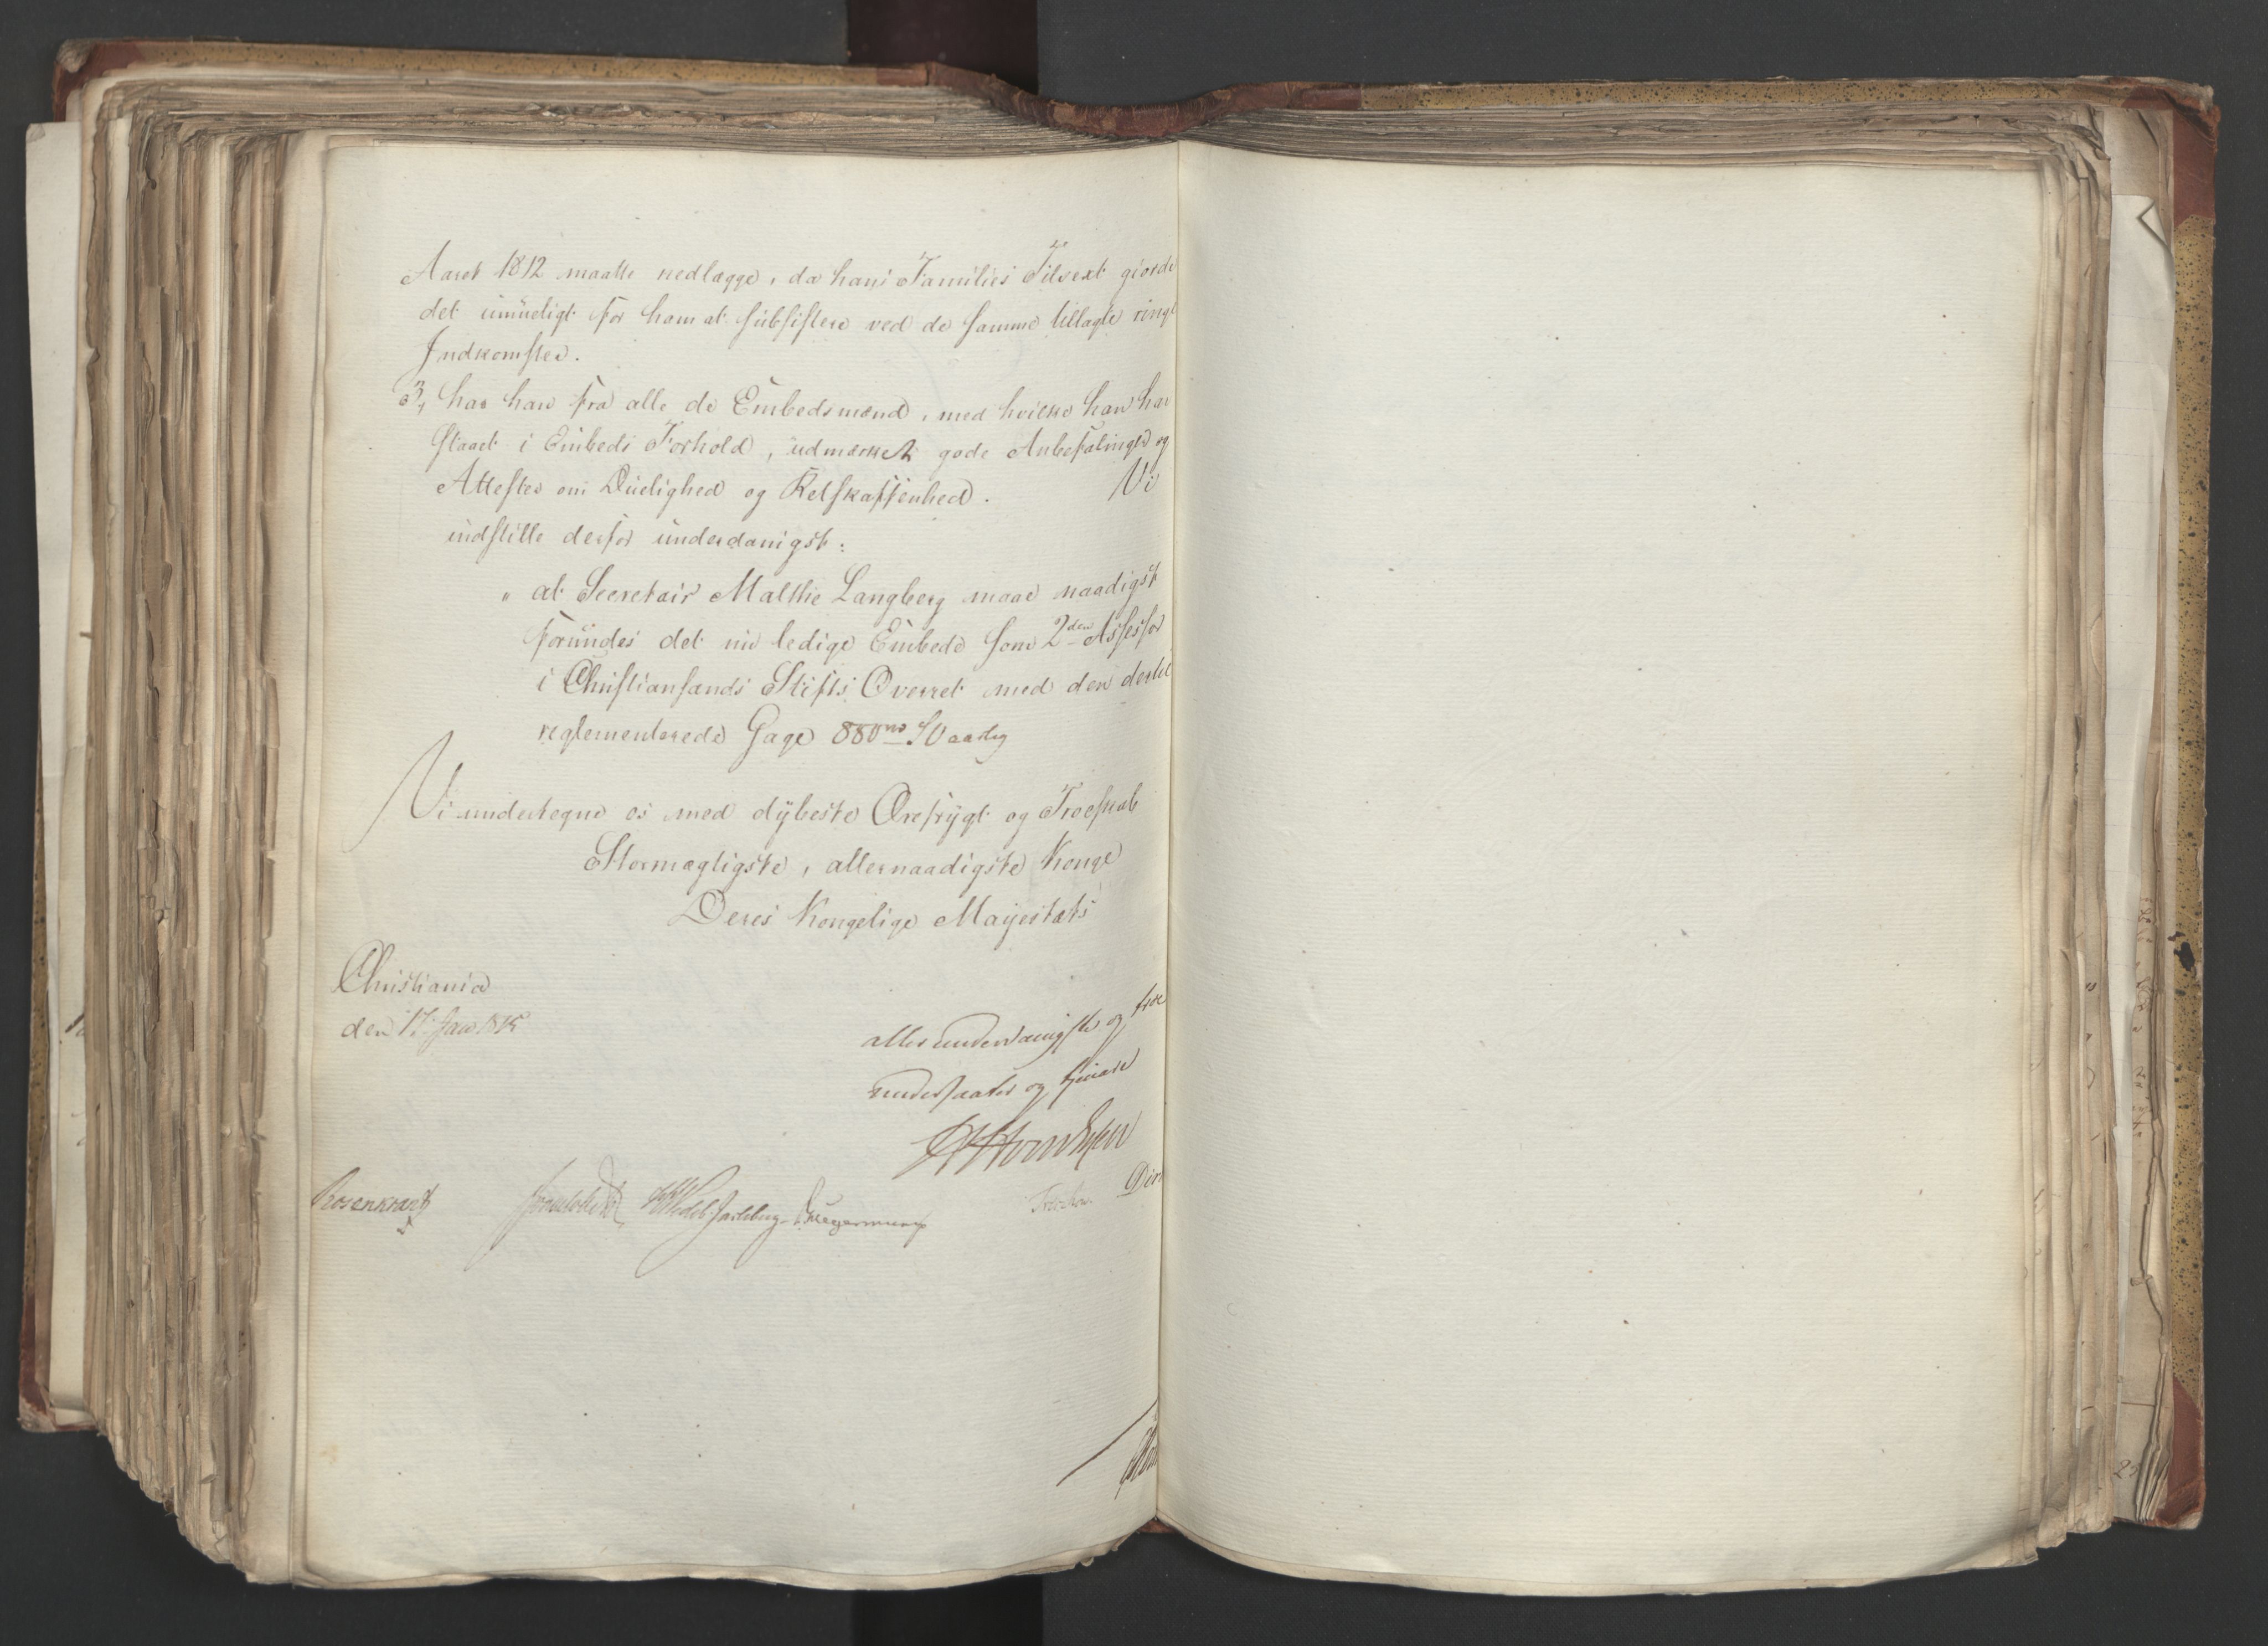 Aaret 1812 maatte nedlægge, da hans Families Tilvext giorde
det umueligt for ham at subsistere ved de samme tillagte ringe
Indkomster.
3, har han fra alle de Embedsmænd, med hvilke han har
staaet i Embeds Forhold, udmærket gode Anbefalinger og
Attester om Duelighed og Retskaffenhed. Vi
indstille derfor underdanigst:
" at Secretair Malthe Langberg maae naadigst
forundes det nu ledige Embede som 2den Assessor
i Christiansands Stifts Overret med den dertil
reglementerede Gage 880 aarlig
Vi undertegne os med dybeste Ærefrygt og Troeskab
Stormægtigste, allernaadigste Konge
Deres Kongelige Mayestæts
Christiania
den 17 Jan 1815
allerunderdanigste og troe
undersaatter og tienere
Rosenkrantz Sommerhielm Wedel Jarlsberg Diriks